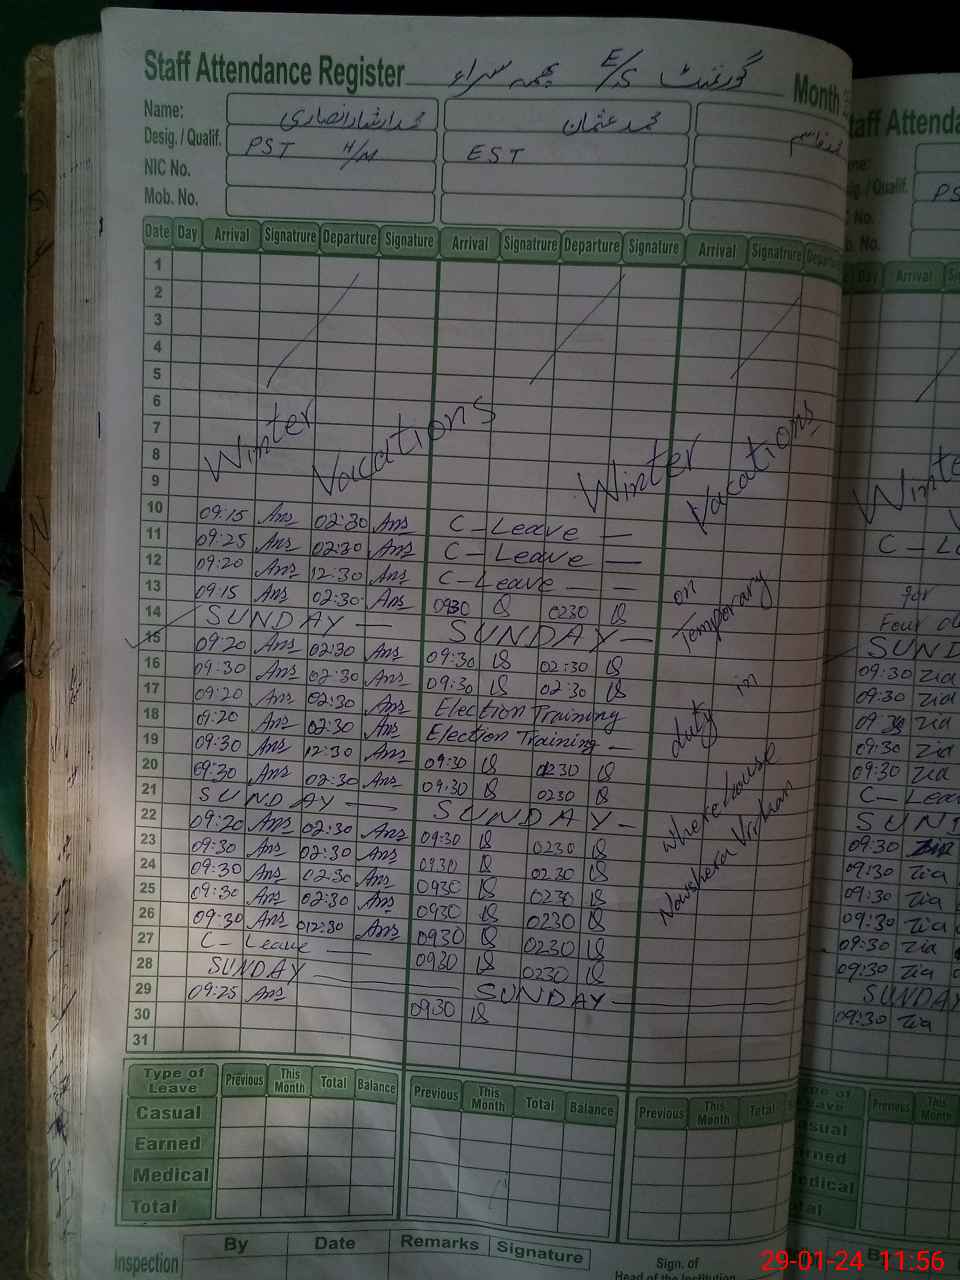 Staff Attendance Register گورنمنٹ E/S چیمہ سراء Month
Name: محمد ارشاد انصاری محمد عثمان محمد قاسم
Desig. / Qualif. PST H/M EST
NIC No.
Mob. No.
Date Day Arrival Signatrure Departure Signature Arrival Signatrure Departure Signature Arrival Signatrure
1
2
3
4
5
6
7
8
9
Winter Vacations Winter Vacations
10 09:15 Ans 02:30 Ans C-Leave —
11 09:25 Ans 02:30 Ans C-Leave —
12 09:20 Ans 12:30 Ans C-Leave — —
13 09:15 Ans 02:30 Ans 0930 0230
14 SUNDAY — SUNDAY —
15 09:20 Ans 02:30 Ans 09:30 02:30
16 09:30 Ans 02:30 Ans 09:30 02:30
17 09:20 Ans 02:30 Ans Election Training
18 09:20 Ans 02:30 Ans Election Training —
19 09:30 Ans 12:30 Ans 09:30 0230
20 09:30 Ans 02:30 Ans 09:30 0230
21 SUNDAY — SUNDAY —
22 09:20 Ans 02:30 Ans 09:30 0230
23 09:30 Ans 02:30 Ans 0930 0230
24 09:30 Ans 02:30 Ans 0930 0230
25 09:30 Ans 02:30 Ans 0930 0230
26 09:30 Ans 012:30 Ans 0930 0230
27 C-Leave — 0930 0230
28 SUNDAY — SUNDAY —
29 09:25 Ans 0930
30
31
on
Temporary
duty in
wherehouse
Nowshera Virkan
Type of Leave Previous This Month Total Balance Previous This Month Total Balance Previous This Month Total
Casual
Earned
Medical
Total
Inspection By Date Remarks Signature Sign. of
Head of the Institution
Staff Attenda
PS
Day Arrival
Winte
C-L
for
Four d
SUND
09:30 Zia
09:30 Zia
Zia
09:30 Zia
09:30 Zia
C-Lea
SUN
09:30
09:30 Zia
09:30 Zia
09:30 Zia
09:30 Zia
09:30 Zia
SUNDAY
09:30 Zia
Previous This Month
By
29-01-24 11:56